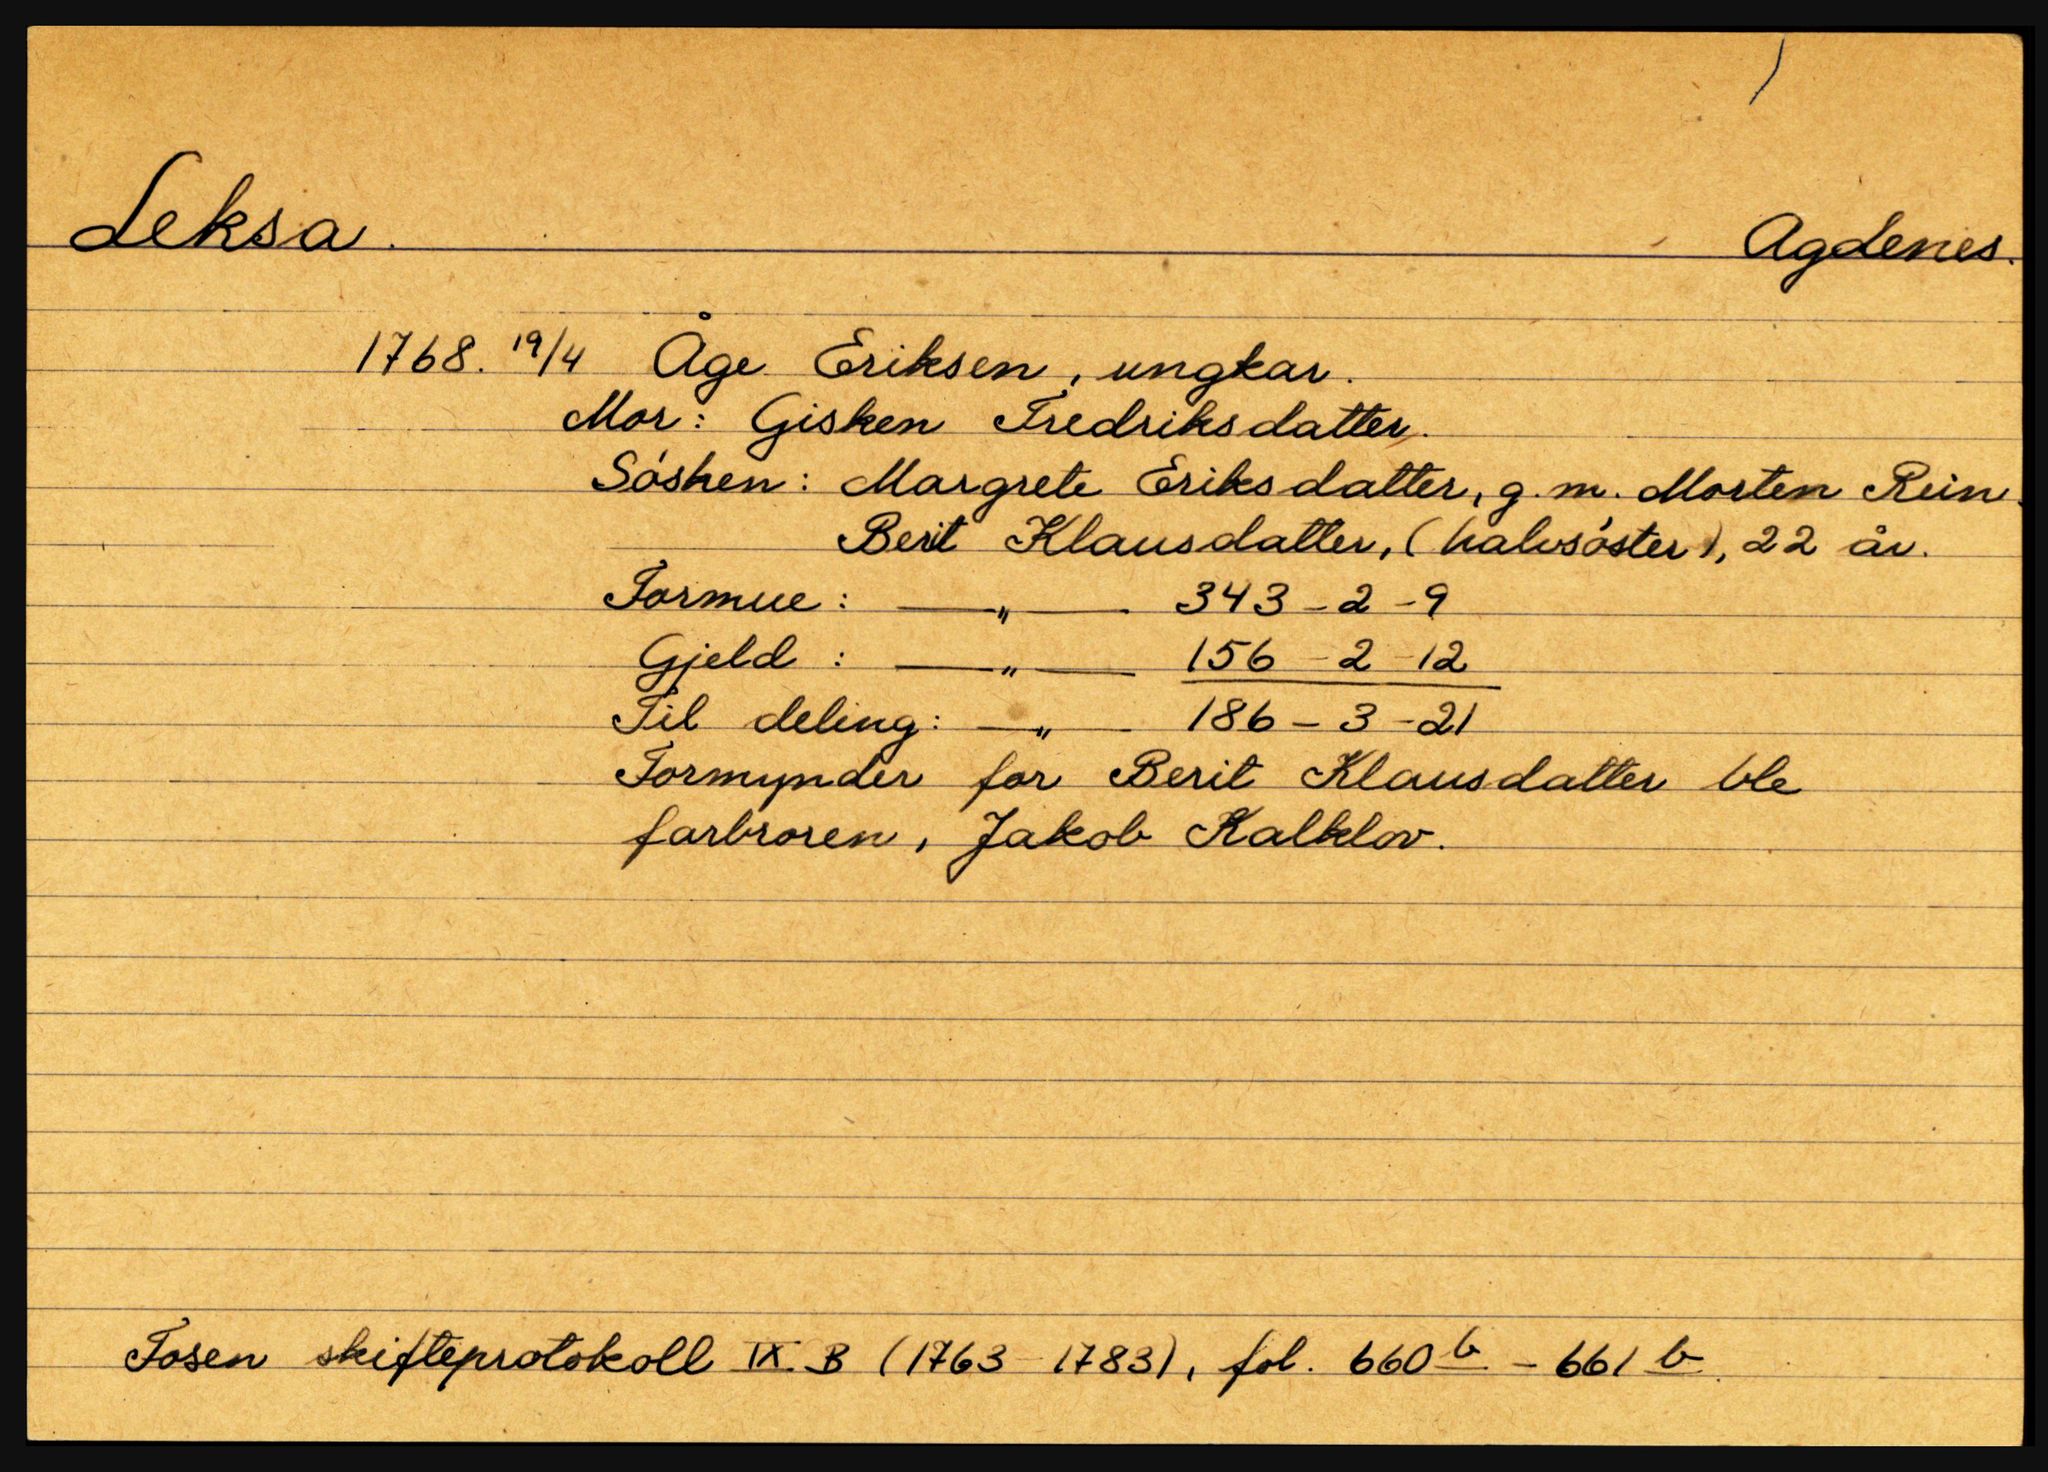 Leksa. Agdenes.
1768. 19/4 Åge Eriksen, ungkar.
Mor: Gisken Fredriksdatter.
Sósken: Margrete Eriksdatter, g.m. Morten Rein.
Berit Klausdatter, (halvsóster), 22 år.
Formue: —„— 343-2-9
Gjeld: —„— 156-2-12
Til deling: —„— 186-3-21
Formynder for Berit Klausdatter ble
farbroren, Jakob Kalklov.
Fosen skifteprotokoll IX B (1763-1783), fol. 660 b - 661 b.